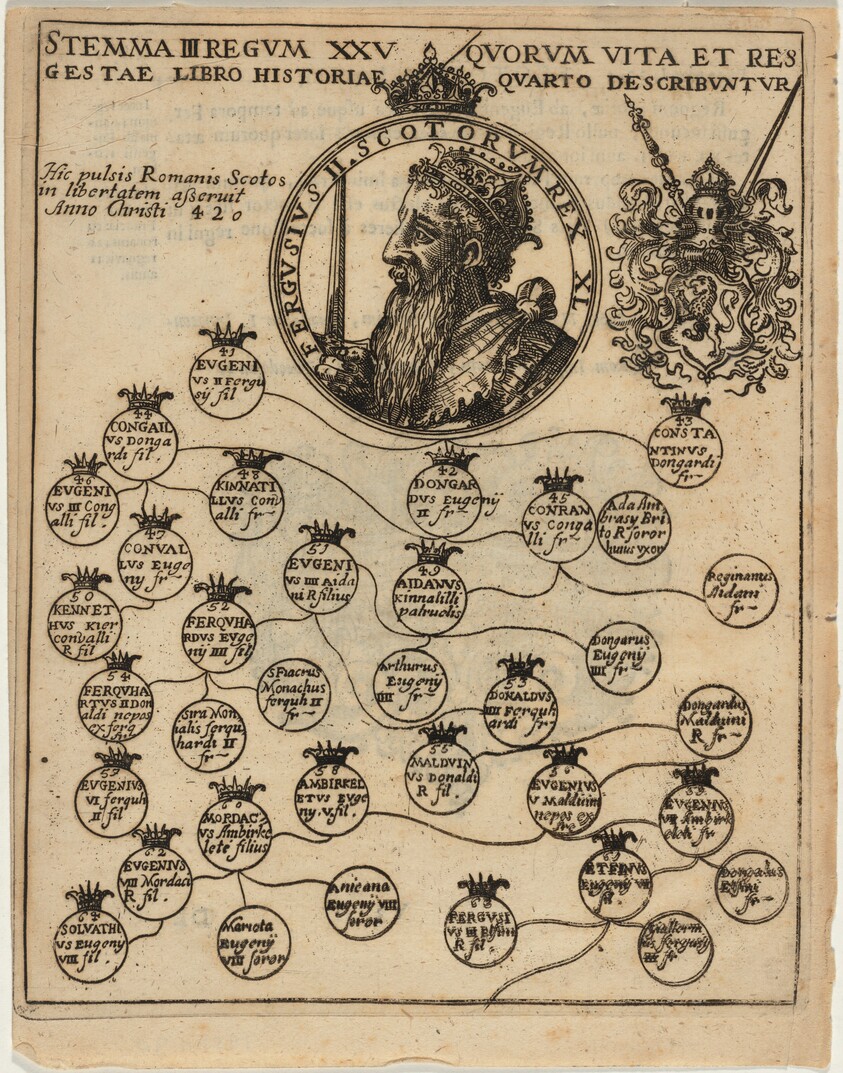 STEMMA III REGVM XXV QVORVM VITA ET RES
GESTAE LIBRO HISTORIAE QVARTO DESCRIBVNTVR
FERGVSIVS II. SCOTORVM REX XL
Hic pulsis Romanis Scotos
in libertatem aßeruit
Anno Christi 420
41
EVGENI
VS II Fergu
sij fil
44
CONGAL
VS Donga
rdi fil.
43
CONSTA
NTINVS
Dongardi
fr
46
EVGENI
VS III Cong
alli fil
48
KINNATI
LLVS Conv
alli fr
42
DONGAR
DVS Eugenij
II fr
45
CONRAN
VS Conga
lli fr
Ada Am
brasy Bri
to R soror
huius vxor
47
CONVAL
LVS Euge
ny fr
51
EVGENI
VS IIII Aida
ni R filius
49
AIDANVS
kinnatilli
patruelis
Reginanus
Aidani
fr
50
KENNET
HVS Kier
convalli
R fil
52
FERQVHA
RDVS Euge
nij IIII fil
Dongarus
Eugenij
IIII fr
54
FERQVHA
RTVS II Don
aldi nepos
ex ferq
S Fiacrus
Monachus
ferquh II
fr
Arthurus
Eugenij
IIII fr
53
DONALDVS
IIII Ferquh
ardi fr
Sira Mon
ialis ferqu
hardi II
fr
Dongardus
Malduini
R fr
55
MALDVIN
VS Donaldi
R fil.
EVGENIVS
VI ferquh
II fil
58
AMBIRKEL
ETVS Euge
ny. V. fil.
EVGENIVS
V Malduini
nepos ex
fre
EVGENIVS
VII Ambirk
eleti fr
60
MORDAC
VS Ambirke
lete filius
62
EVGENIVS
VIII Mordaci
R fil.
ETFINVS
Eugenij VII
fil.
fr
64
SOLVATHI
VS Eugeny
VIII fil
Mariota
Eugenij
VIII soror
Anicana
Eugenij VIII
soror
FERGVSI
VS III Etfini
R fil
fr